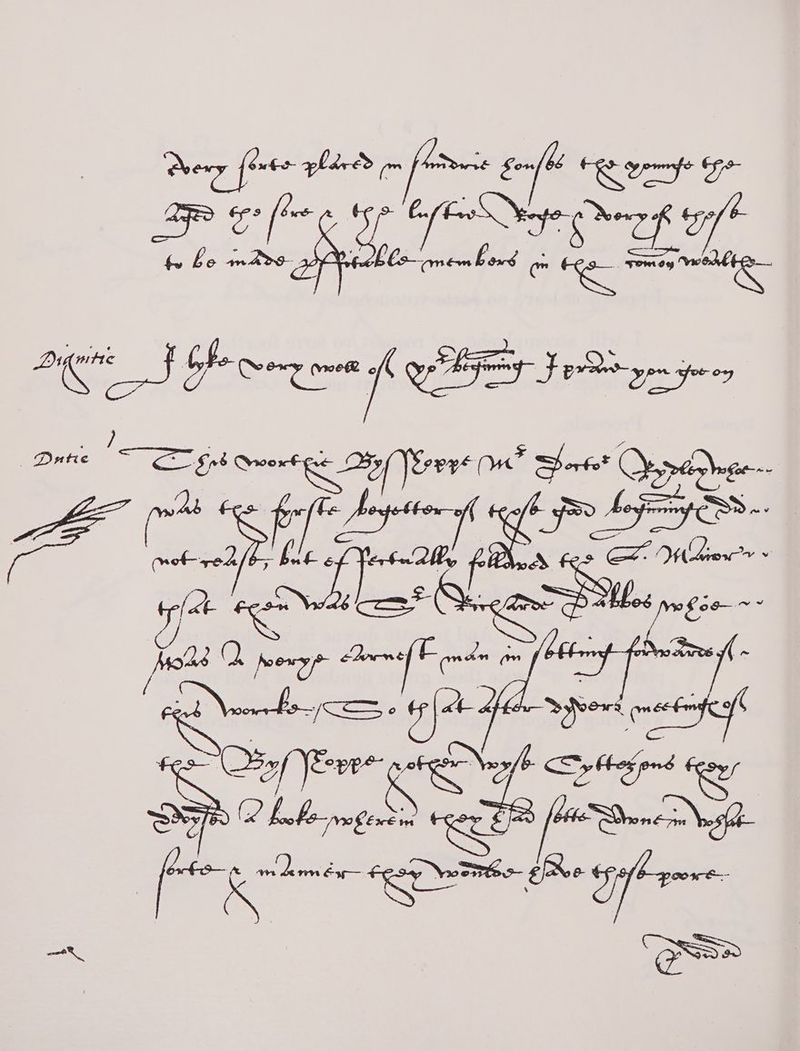 every sorte placed in sundrie houses the younge the
Aged the sore & the lustie Roge & every of these
to be made pfitable members in the comon wealthe
Dignitie I lyke very well of yor begining I praie you goe on
Dutie This worthie Bysshoppe Mr Doctor Rydley whoe
was the fyrste begetter of these good beginninge Did
not cease, but effectually followed the L. Maior
that then was Sr Richarde Dobbes whoe
was A verye earnest man in setting forwarde of
this worcke / So that after dyvers meetinge of
the Bysshoppe & other wyse Cyttezens they
devysed A booke wherein they had sette downe in what
sorte & manner they woulde have these poore